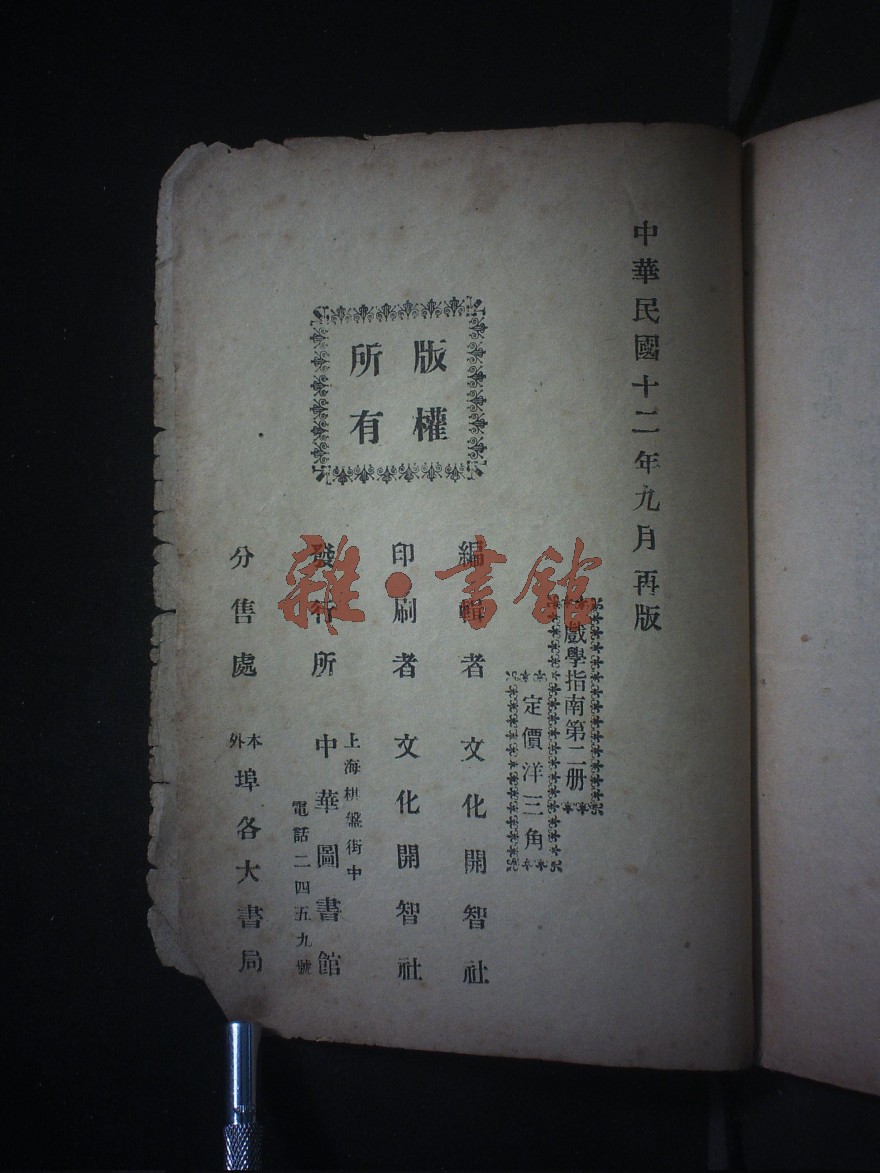 中華民國十二年九月再版
戲學指南第二册
定價洋三角
編輯者 文化開智社
印刷者 文化開智社
發行所 上海棋盤街中 中華圖書館 電話二四五九號
分售處 本外埠各大書局
版權所有
雜·書館